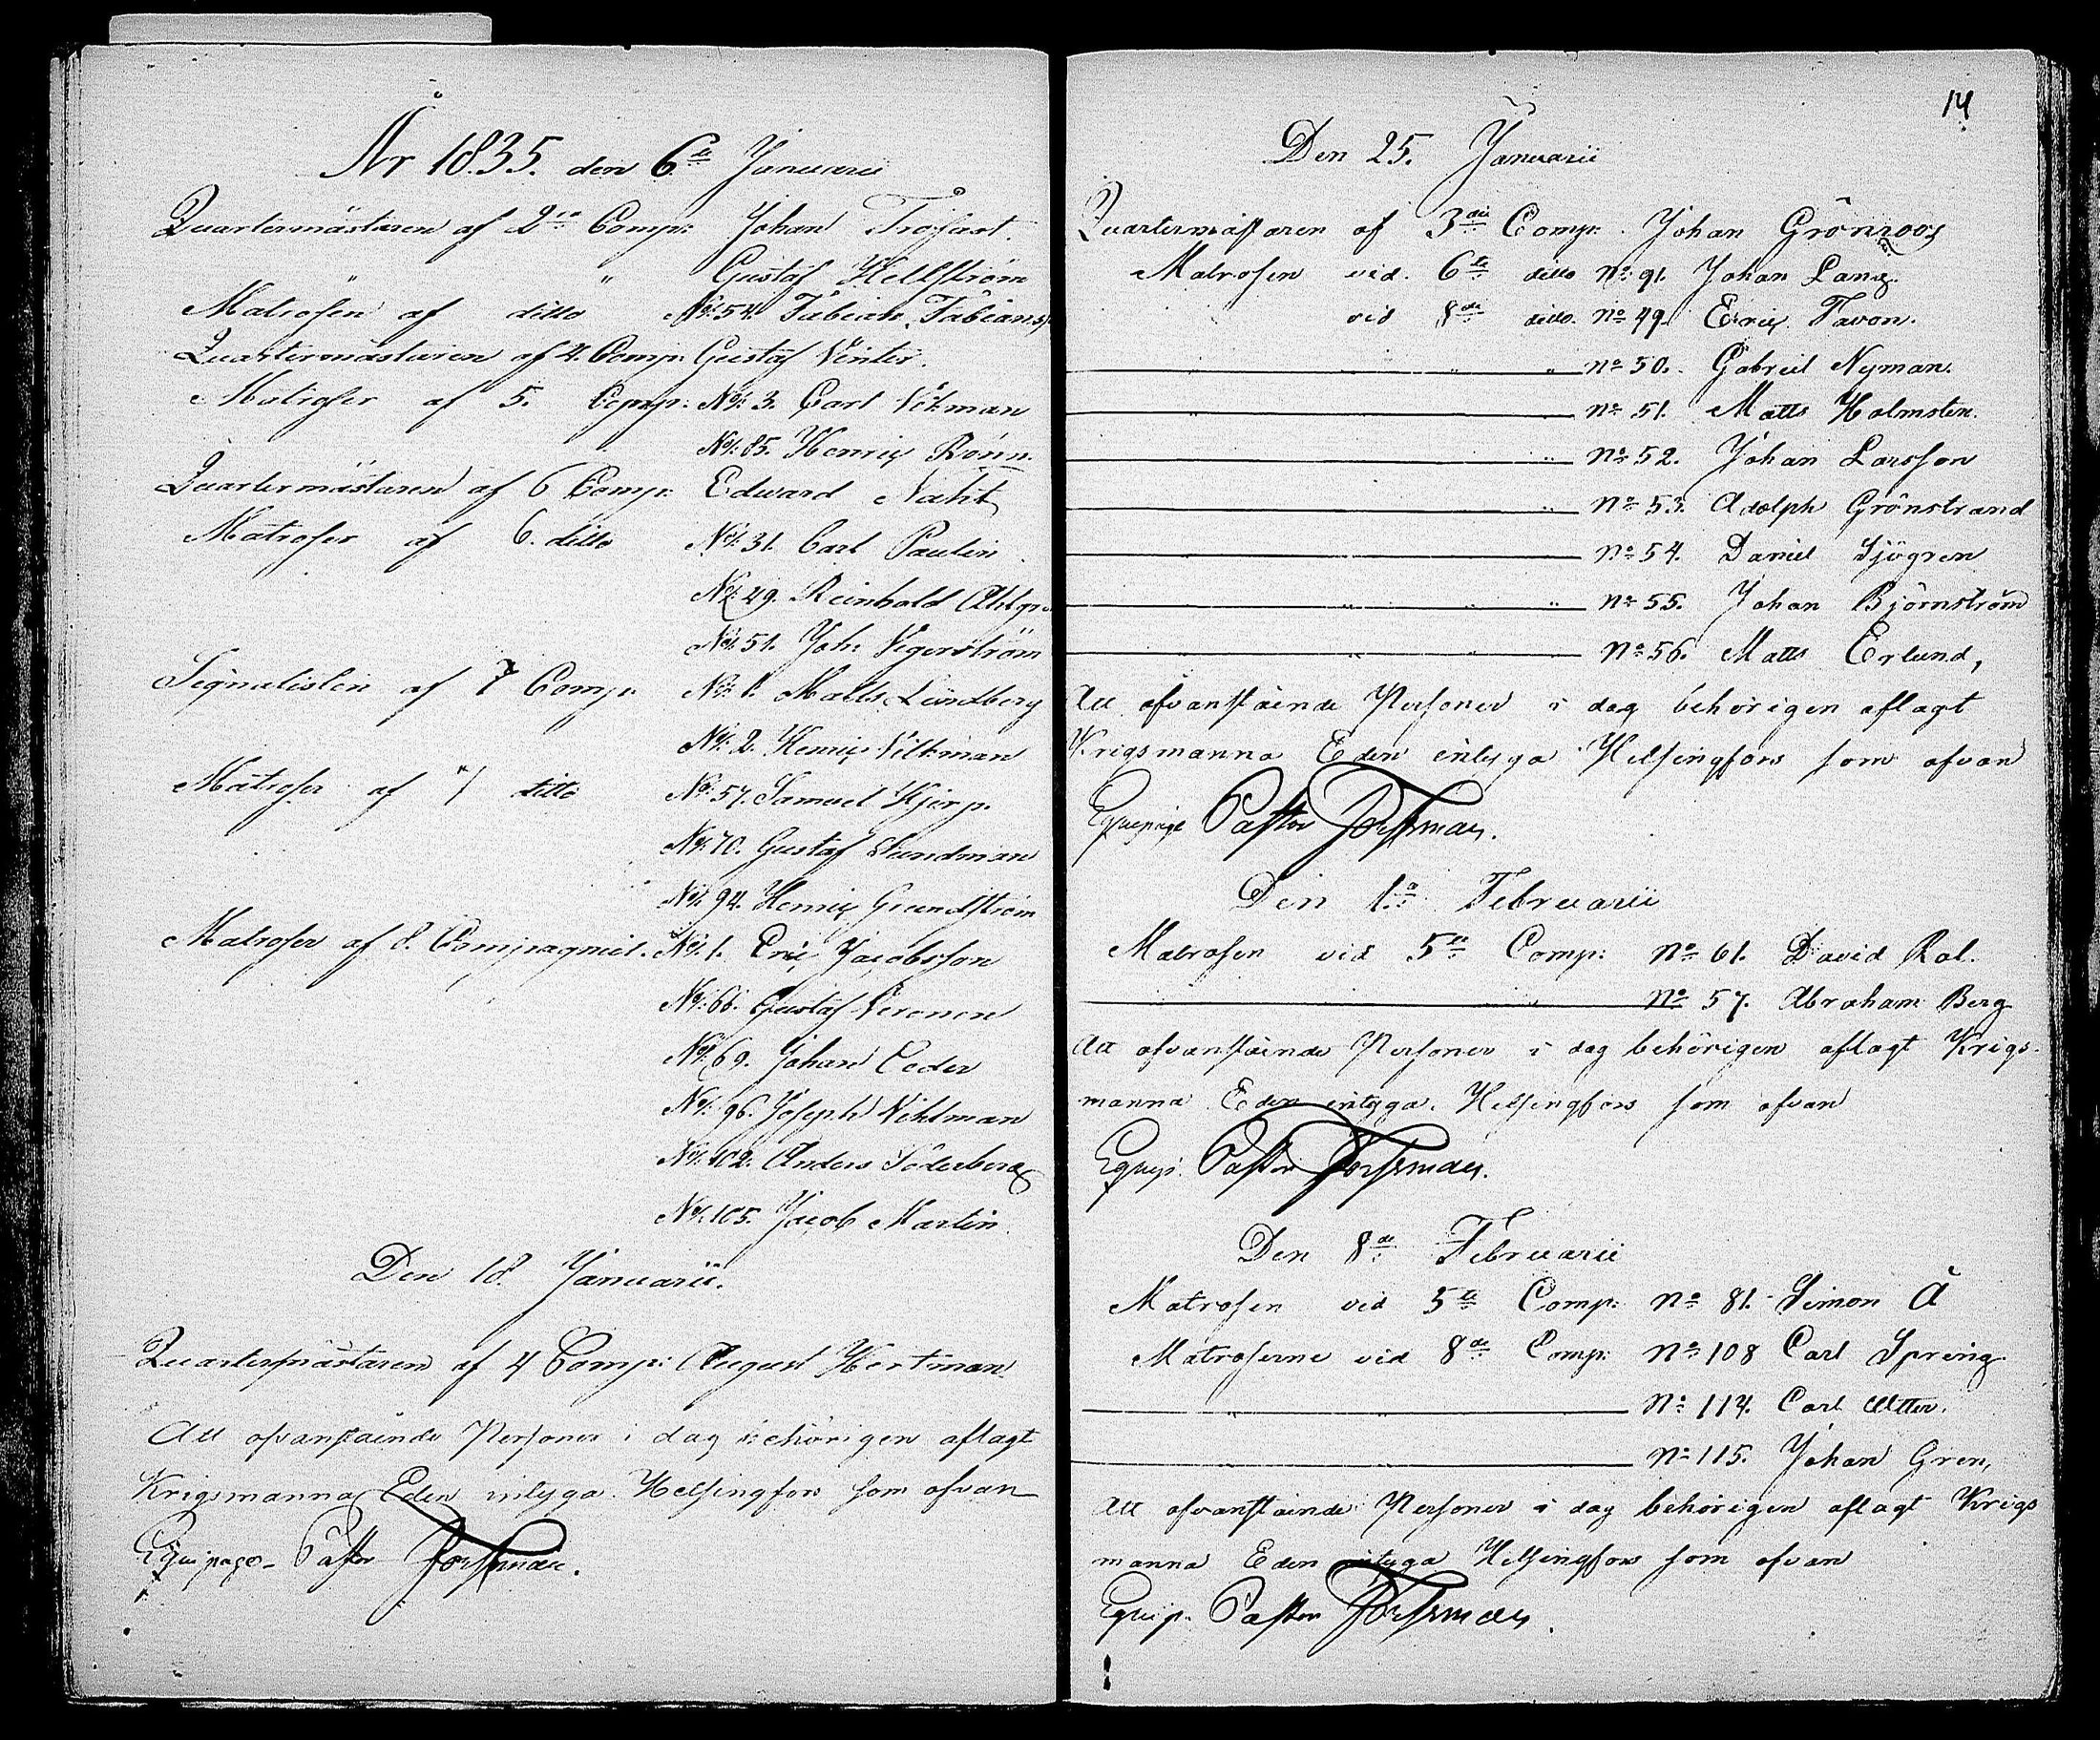 År 1835. den 6te Januarii
Quartermästaren af 2ra Comp: Johan Trofast.
" " Gustaf Hellström
Matrosen af ditto No: 54. Fabian Fabianss.
Quartermästaren af 4. Comp: Gustaf Vinter.
Matroser af 5. Comp: No: 3. Carl Vikman
No: 85. Henrix Rönn.
Quartermästaren af 6 Comp: Edward Nacht
Matroser af 6. ditto No: 31. Carl Paulin
No: 49. Reinhold Ahlgre
No: 51. Joh: Vegerström
Signalisten af 7 Comp: No: 1. Matts Lundberg
No: 2. Henrix Vikman
Matroser af 7 ditto No: 57. Samuel Skjerp.
No: 70. Gustaf Sundman
No: 94. Henrix Grundström
Matroser af 8. Compagniet. No: 1. Eric Jacobsson
No: 66. Gustaf Veronen
No: 69. Johan Ceder
No: 96. Joseph Vihlman
No: 102. Anders Söderberg
No: 105. Jacob Martin.
Den 18. Januarii.
Quartermästaren af 4 Comp: August Hertman
Att ofvanstående Personer i dag behörigen aflagt
Krigsmanna Eden intyga Helsingfors som ofvan
Equipage- Pastor Forssman.
14
Den 25. Januarii
Quartermästaren af 3die Comp: Johan Grönroos
Matrosen vid 6te ditto No 91. Johan Lang.
vid 8de ditto. No 49. Erix Tavon.
" " No 50. Gabriel Nyman.
No 51. Matts Holmsten.
" No 52. Johan Larsson
" No 53. Adolph Grönstrand
No 54. Daniel Sjögren
" " No 55. Johan Björnström
" " No 56. Matts Erlund,
Att ofvanstående Personer i dag behörigen aflagt
Krigsmanna Eden intyga Helsingfors som ofvan
Equipage Pastor Forssman.
Den 1.a Februarii
Matrosen vid 5te Comp: No 61. David Ral.
No 57. Abraham Berg
Att ofvanstående Personer i dag behörigen aflagt Krigs-
manna Eden intyga. Helsingfors som ofvan
Equip. Pastor Forssman.
Den 8de Februarii
Matrosen vid 5te Comp: No 81. Simon Å
Matroserne vid 8de Comp: No 108 Carl Spring
No 114. Carl Utter.
No 115. Johan Gren,
Att ofvanstående Personer i dag behörigen aflagt Krigs
manna Eden intyga Helsingfors som ofvan
Equip. Pastor Forssman.